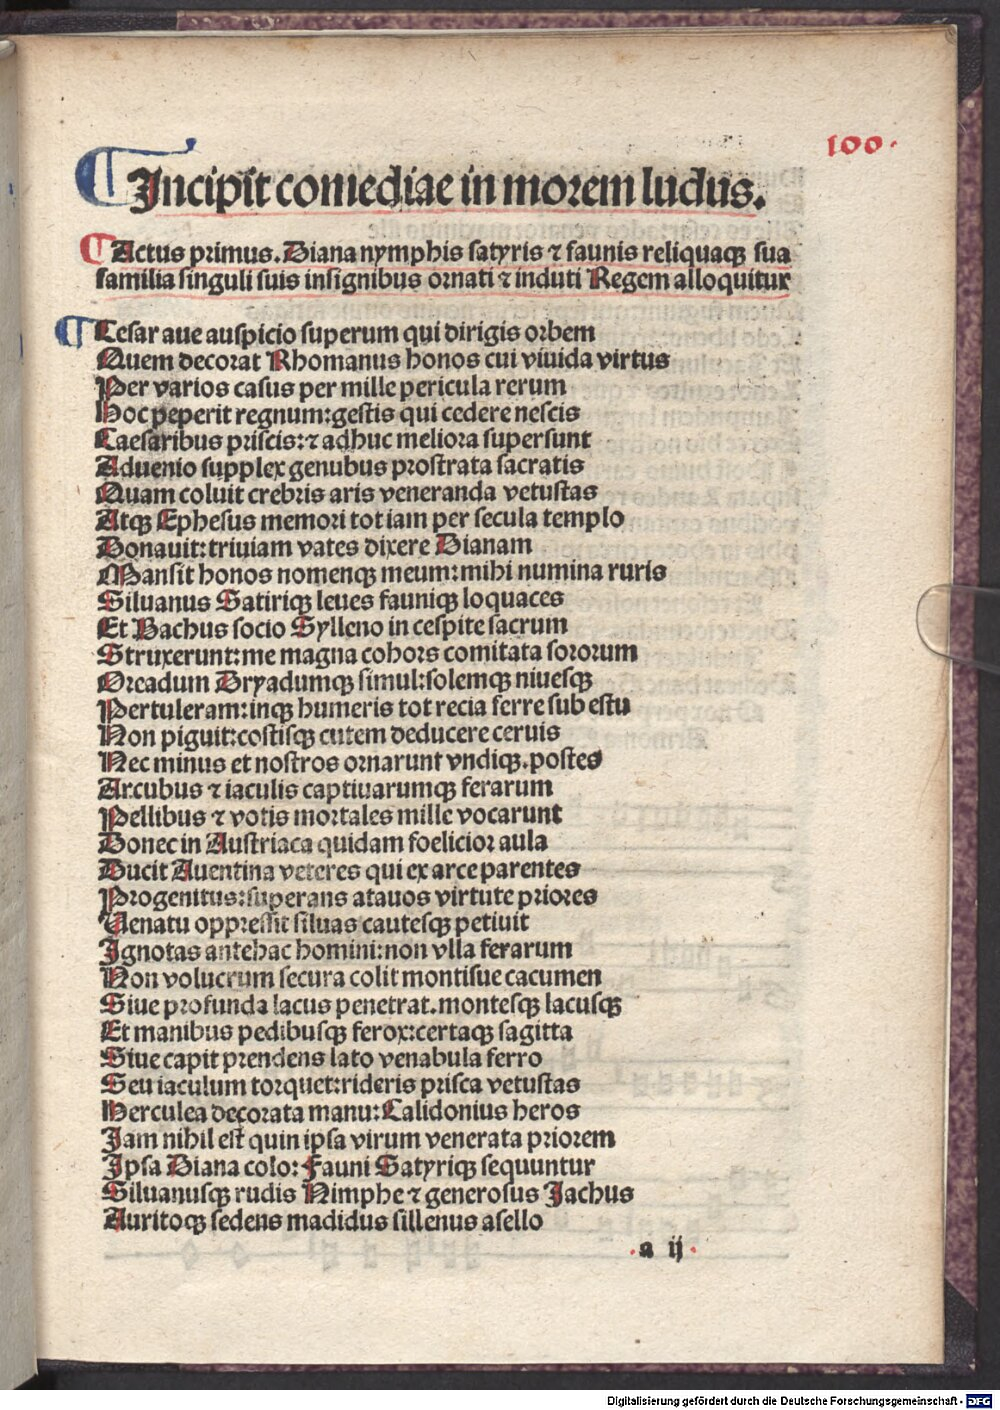 100.
Incipit comediae in morem ludus.
Actus primus. Diana nymphis satyris ⁊ faunis reliquaqꝫ sua
familia singuli suis insignibus ornati ⁊ induti Regem alloquitur
Cesar aue auspicio superum qui dirigis orbem
Quem decorat Rhomanus honos cui viuida virtus
Per varios casus per mille pericula rerum
Hoc peperit regnum: gestis qui cedere nescis
Caesaribus priscis: ⁊ adhuc meliora supersunt
Aduenio supplex genubus prostrata sacratis
Quam coluit crebris aris veneranda vetustas
Atqꝫ Ephesus memori tot iam per secula templo
Donauit: triuiam vates dixere Dianam
Mansit honos nomenqꝫ meum: mihi numina ruris
Siluanus Satiriqꝫ leues fauniqꝫ loquaces
Et Bachus socio Sylleno in cespite sacrum
Struxerunt: me magna cohors comitata sororum
Oreadum Dryadumqꝫ simul: solemqꝫ niuesqꝫ
Pertuleram: inqꝫ humeris tot recia ferre sub estu
Non piguit: costisqꝫ cutem deducere ceruis
Nec minus et nostros ornarunt vndiqꝫ. postes
Arcubus ⁊ iaculis captiuarumqꝫ ferarum
Pellibus ⁊ votis mortales mille vocarunt
Donec in Austriaca quidam foelicior aula
Ducit Auentina veteres qui ex arce parentes
Progenitus: superans atauos virtute priores
Venatu oppressit siluas cautesqꝫ petiuit
Ignotas antehac homini: non vlla ferarum
Non volucrum secura colit montisue cacumen
Siue profunda lacus penetrat. montesqꝫ lacusqꝫ
Et manibus pedibusqꝫ ferox: certaqꝫ sagitta
Siue capit prendens lato venabula ferro
Seu iaculum torquet: rideris prisca vetustas
Herculea decorata manu: Calidonius heros
Iam nihil est quin ipsa virum venerata priorem
Ipsa Diana colo: Fauni Satyriqꝫ sequuntur
Siluanusqꝫ rudis Nimphe ⁊ generosus Iachus
Auritoqꝫ sedens madidus sillenus asello
.a ij.
Digitalisierung gefördert durch die Deutsche Forschungsgemeinschaft - DFG